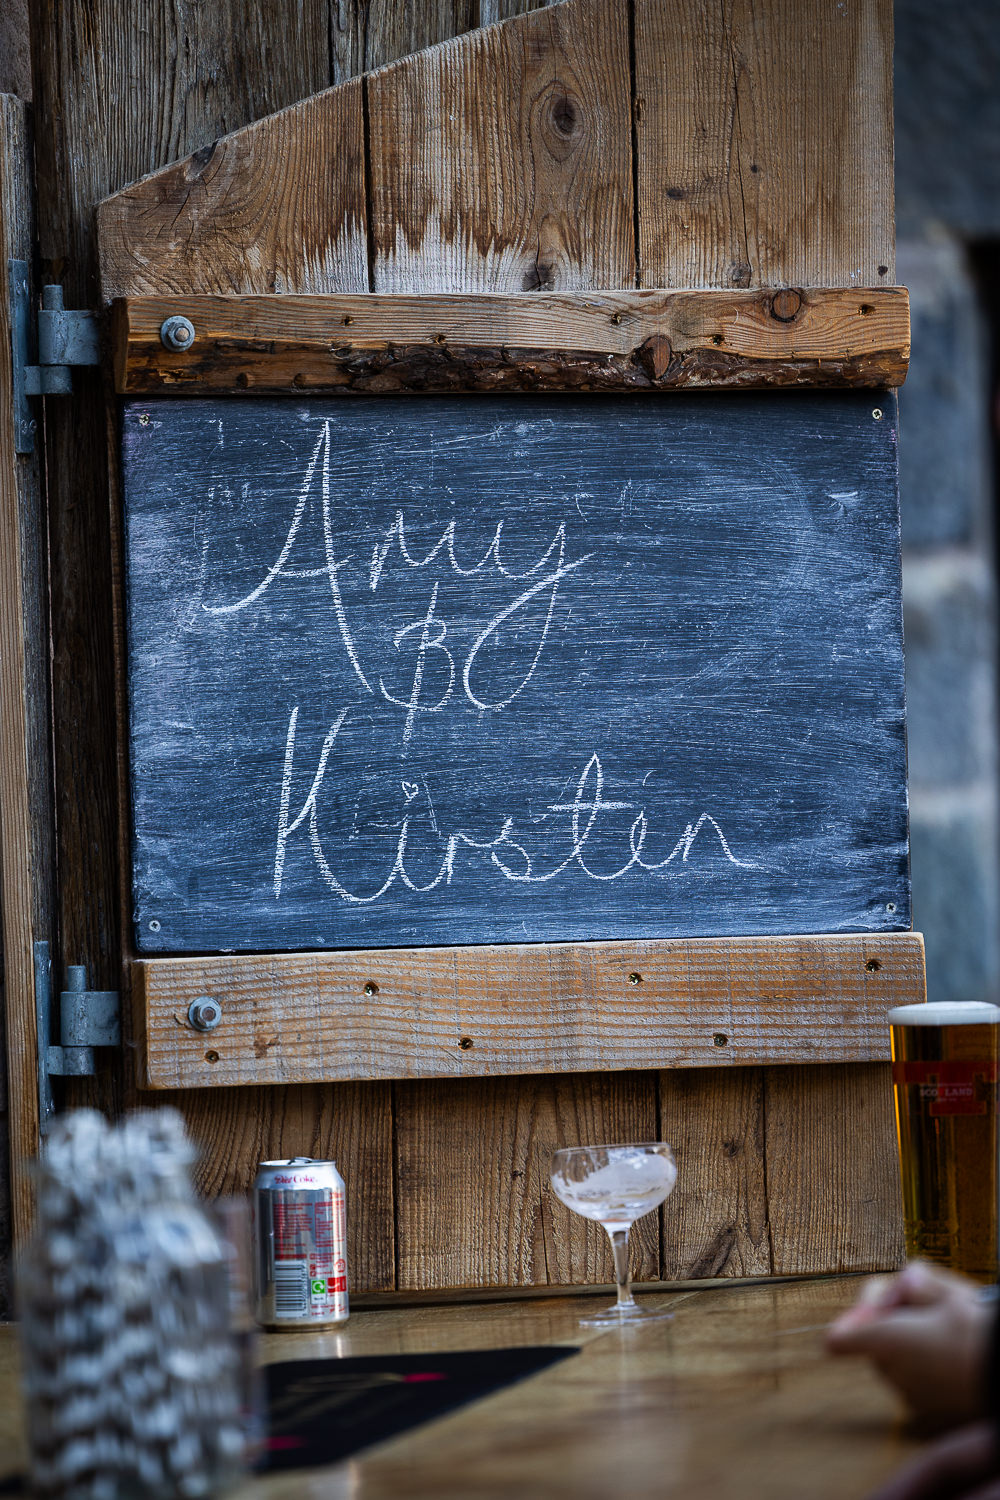 Amy
B
Kirsten
Diet Coke
SCOTLAND